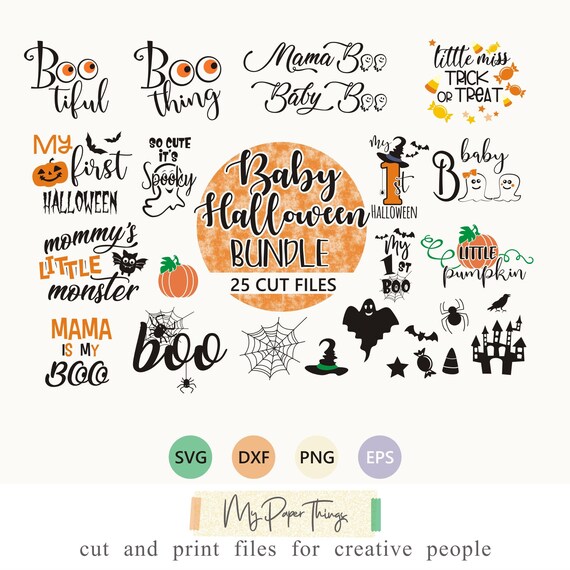 Boo
tiful
Boo
thing
Mama Boo
Baby Boo
little miss
TRICK
OR TREAT
My
first
HALLOWEEN
SO CUTE
IT'S
Spooky
Baby
Halloween
BUNDLE
25 CUT FILES
My
1st
HALLOWEEN
baby
Boo
mommy's
LITTLE
monster
My
1ST
BOO
LITTLE
pumpkin
MAMA
IS MY
BOO
boo
SVG
DXF
PNG
EPS
My Paper Things
cut and print files for creative people